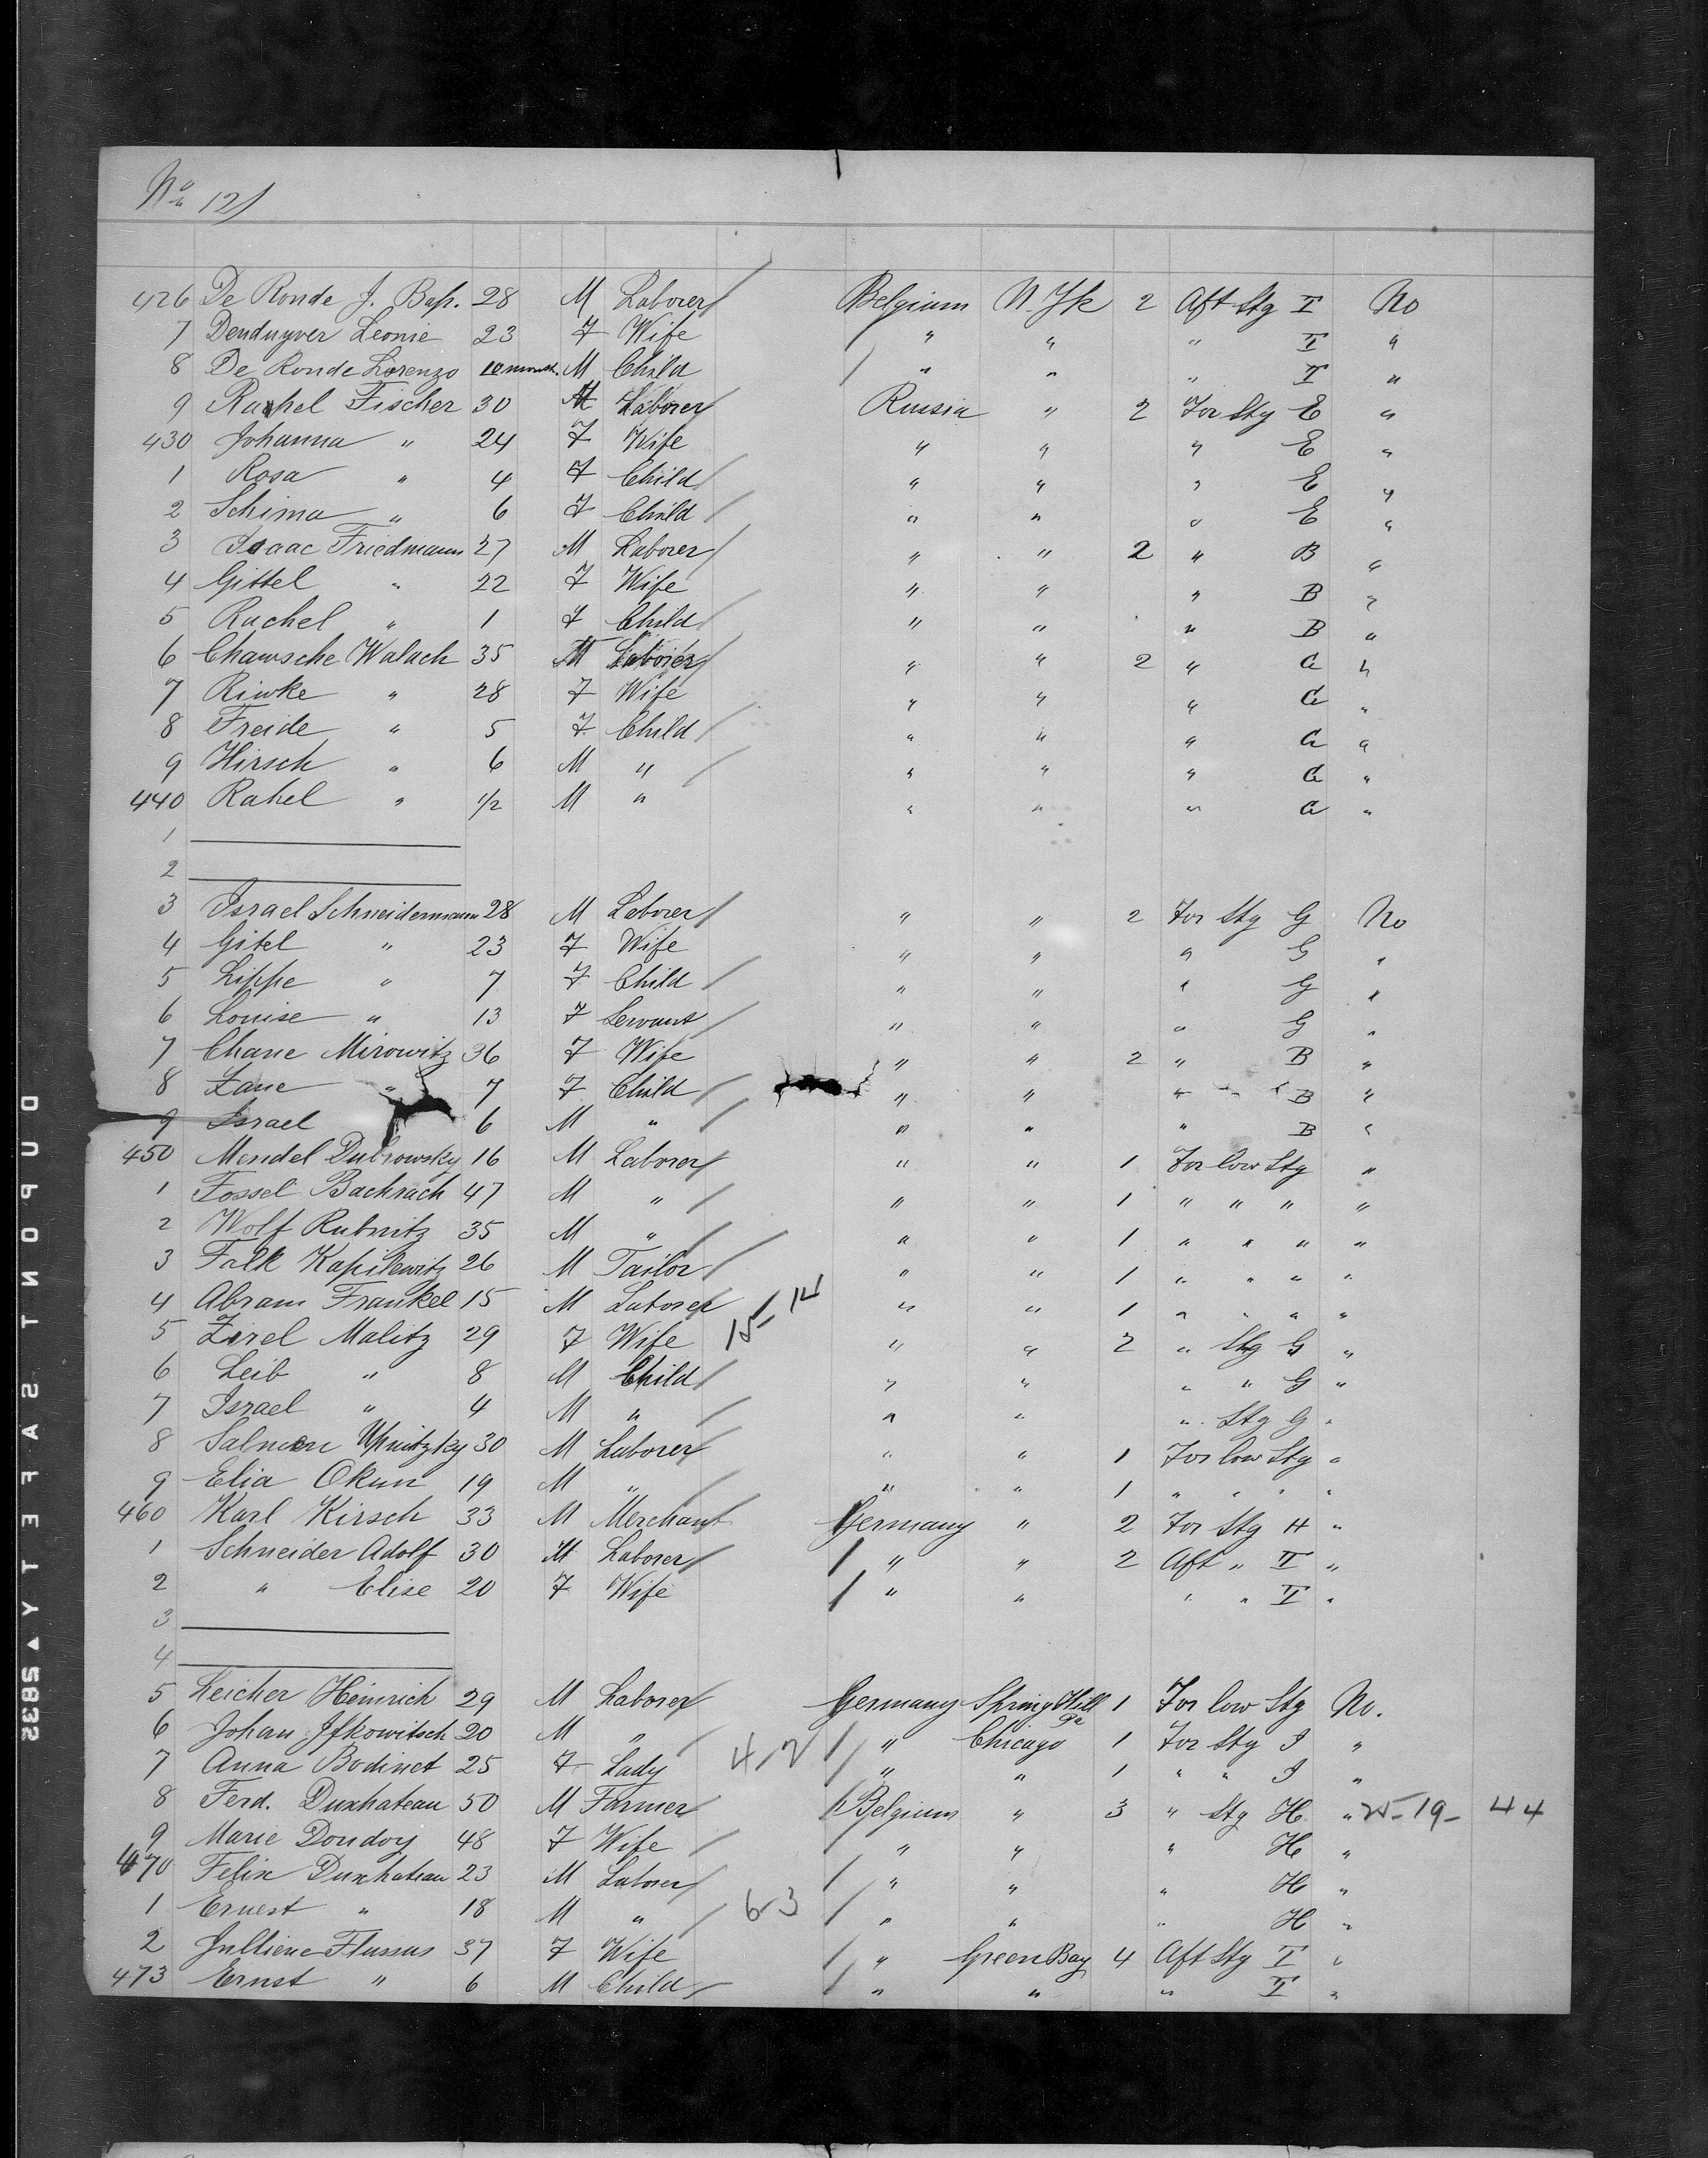 No 12)
426 De Ronde J. Bap. 28 M Laborer Belgium N. Yk 2 Aft Stg I No
7 Denduyver Leonie 23 F Wife " " " I "
8 De Ronde Lorenzo 10 month. M Child " " " I "
9 Rachel Fischer 30 M Laborer Russia " 2 For Stg E "
430 Johanna " 24 F Wife " " " E "
1 Rosa " 4 F Child " " " E "
2 Schima " 6 F Child " " " E "
3 Isaac Friedmann 27 M Laborer " " 2 " B "
4 Gittel " 22 F Wife " " " B "
5 Rachel " 1 F Child " " " B "
6 Chawsche Walach 35 M Laborer " " 2 " "
7 Riwke " 28 F Wife " " " "
8 Freide " 5 F Child " " " "
9 Hirsch " 6 M " " " " "
440 Rahel " 1/2 M " " " " "
1
2
3 Israel Schneidermann 28 M Laborer " " 2 For Stg G No
4 Gitel " 23 F Wife " " " G "
5 Lippe " 7 F Child " " " G "
6 Louise " 13 F Servant " " " G "
7 Chane Mirowitz 36 F Wife " " 2 " B "
8 Zane " 7 F Child " " " B "
9 Israel 6 M " " " " B "
450 Mendel Dubrowsky 16 M Laborer " " 1 For low Stg "
1 Fossel Bachrach 47 M " " " 1 " " " "
2 Wolf Rubnitz 35 M " " " 1 " " " "
3 Falk Kapilewitz 26 M Tailor " " 1 " " " "
4 Abram Frankel 15 M Laborer " " 1 " " " "
5 Zirel Malitz 29 F Wife " " 2 " Stg G "
6 Leib " 8 M Child " " " " G "
7 Israel " 4 M " " " " Stg G "
8 Salmon 30 M Laborer " " 1 For low Stg "
9 Elia Okun 19 M " " " 1 " " " "
460 Karl Kirsch 33 M Merchant Germany " 2 For Stg H "
1 Schneider Adolf 30 M Laborer " " 2 Aft " II "
2 " Elise 20 F Wife " " " " I "
3
4
5 Leicher Heinrich 29 M Laborer Germany Spring Hill Pa 1 For low Stg No.
6 Johan Jfkowitsch 20 M " " Chicago 1 For Stg J "
7 Anna Bodinet 25 F Lady 4-2 " " 1 " " J "
8 Ferd. Duchateau 50 M Farmer Belgium " 3 " Stg H " 25-19- 44
9 Marie Dondoy 48 F Wife " " " H "
470 Felix Duchateau 23 M Laborer " " " H "
1 Ernest " 18 M " 6-3 " " " H "
2 Julliene Flussus 37 F Wife " Green Bay 4 Aft Stg I "
473 Ernst " 6 M Child " " " I "
DUPONT SAFETY 5832